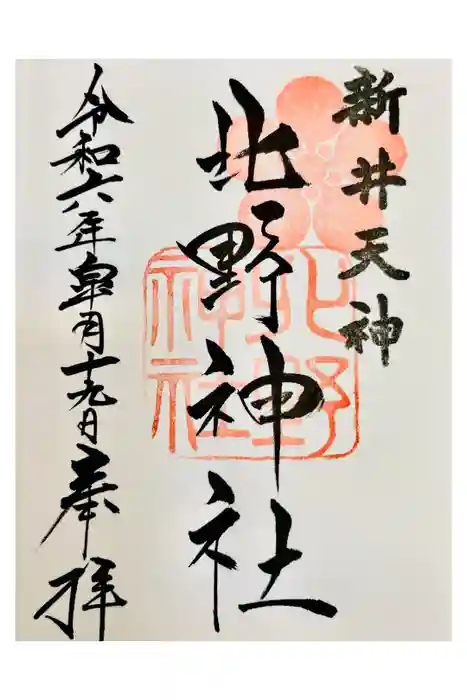 新井天神
北野神社
令和六年皐月十九日奉拝
北野神社